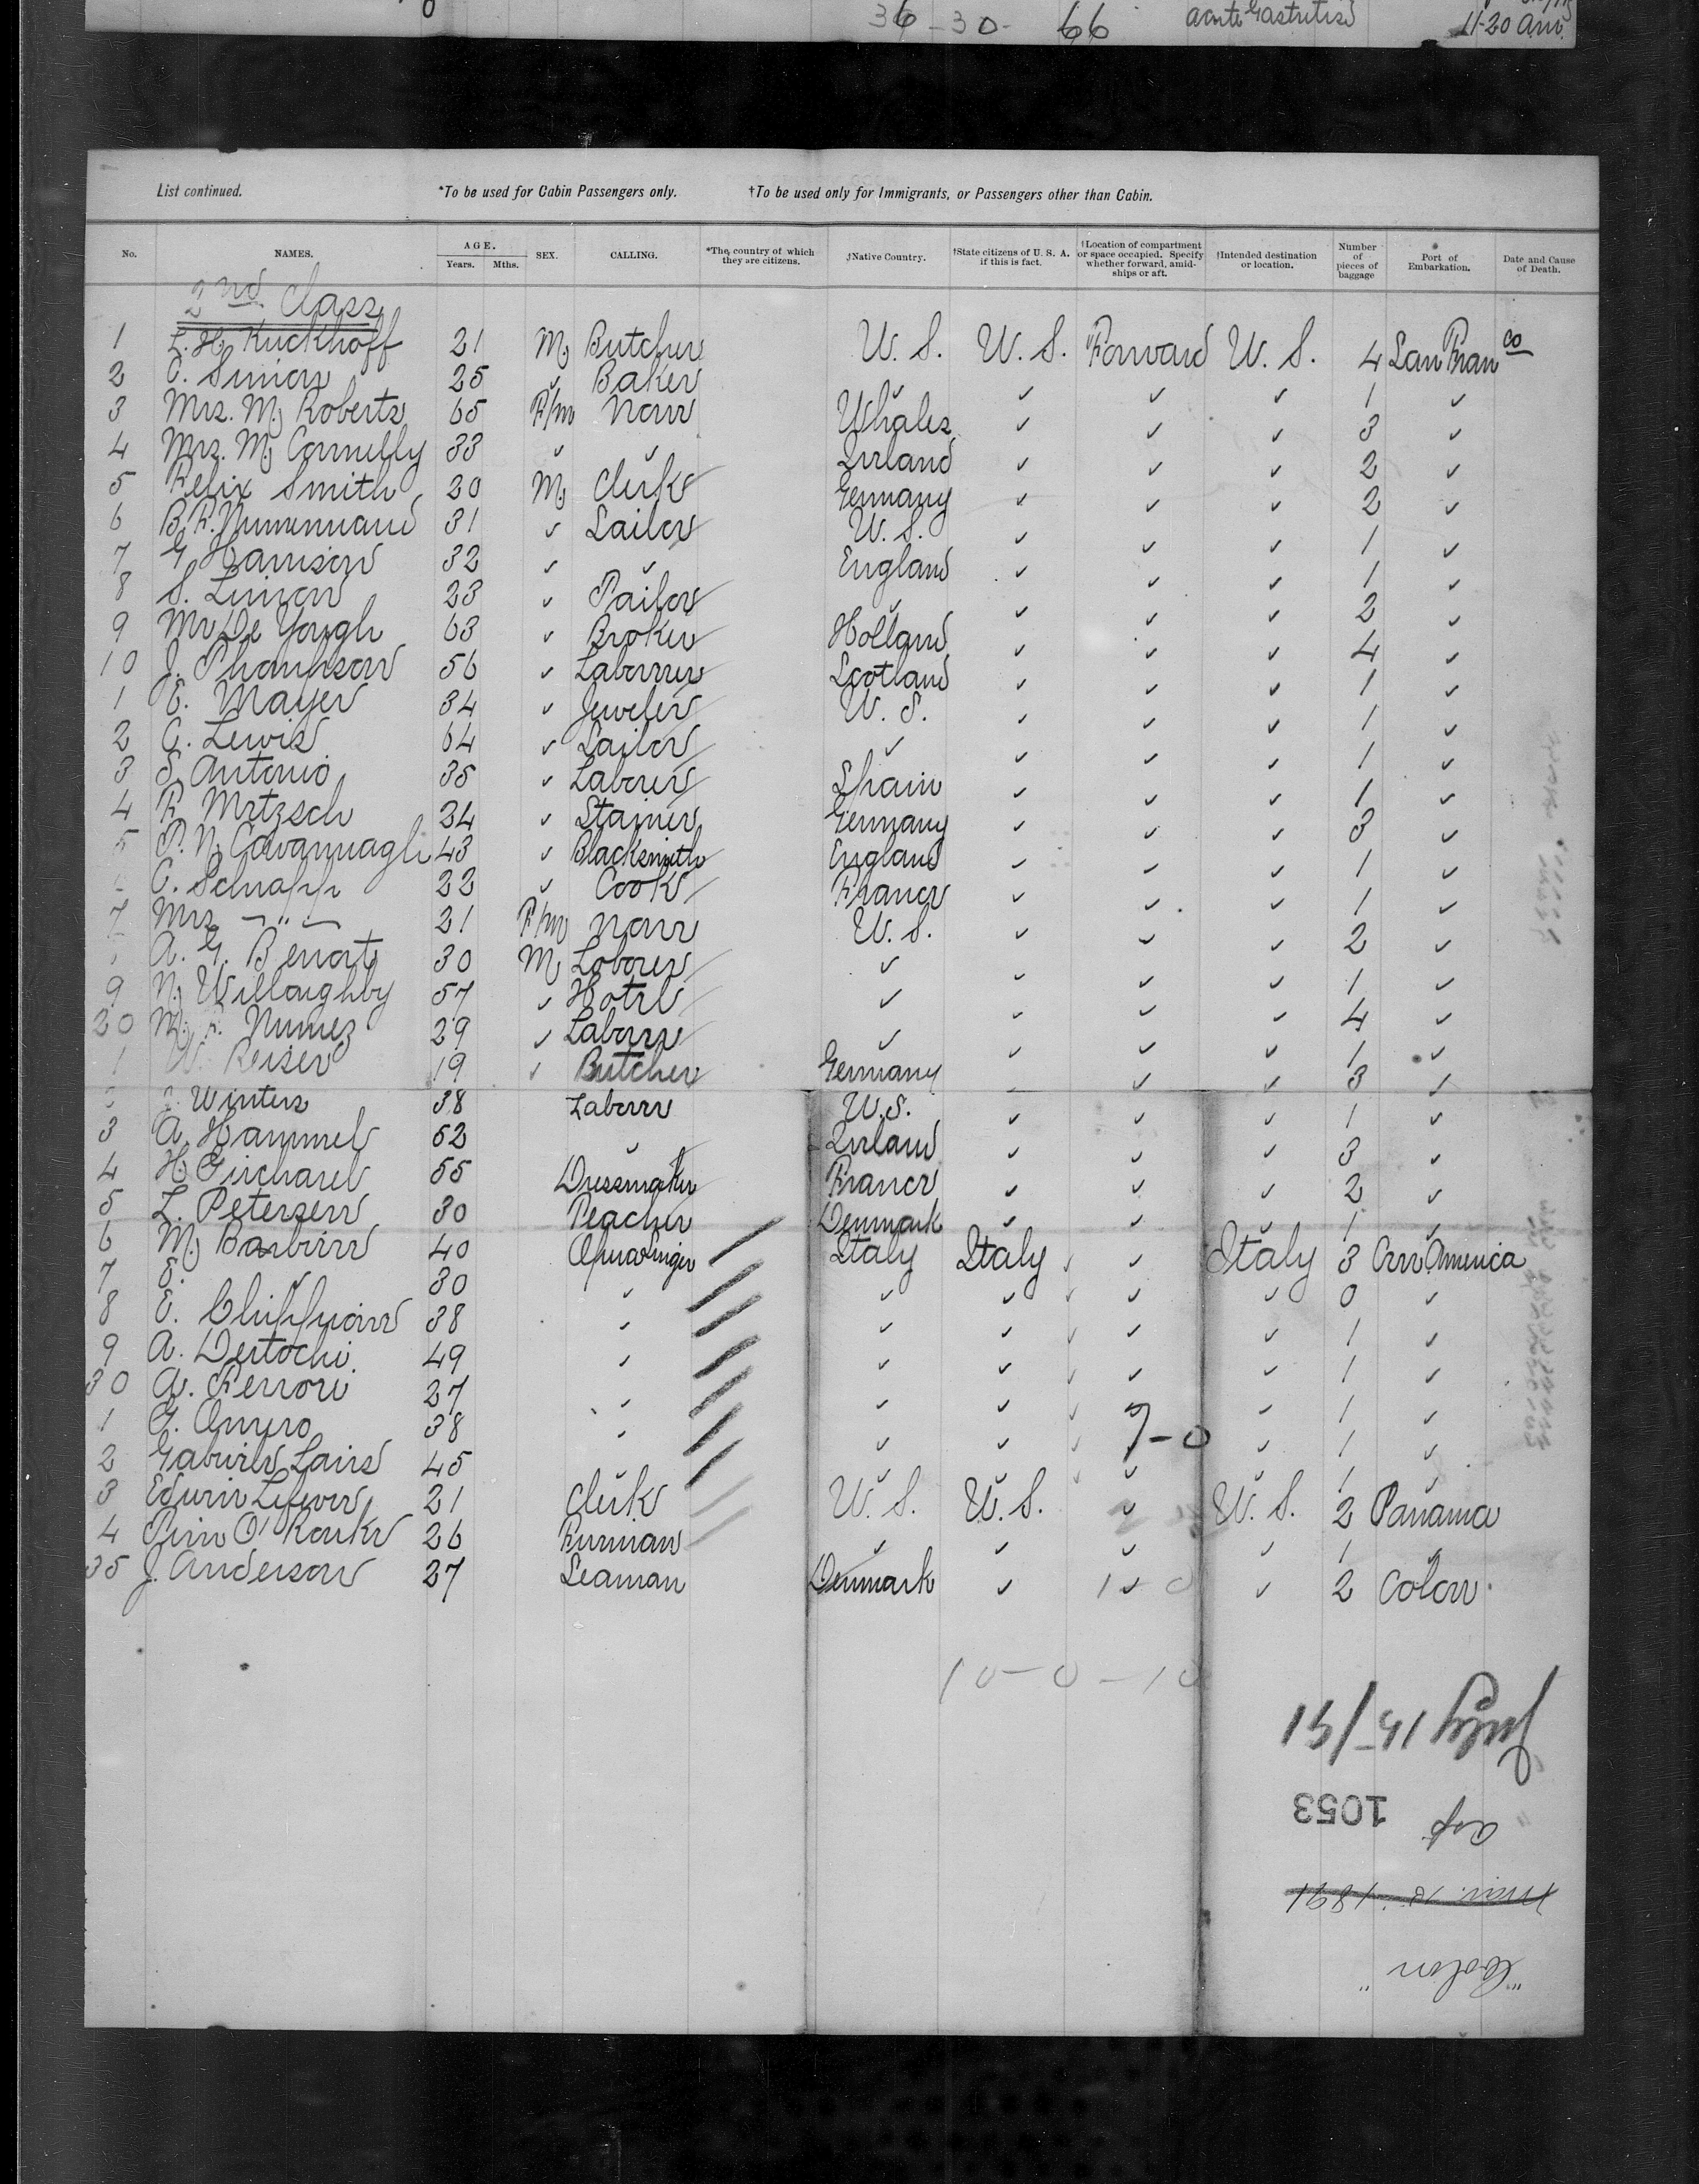 36-30- 66 acute Gastritis 11-20 am.
List continued. *To be used for Cabin Passengers only. †To be used only for Immigrants, or Passengers other than Cabin.
No. NAMES. AGE. Years. Mths. SEX. CALLING. *The country of which they are citizens. †Native Country. †State citizens of U. S. A. if this is fact. †Location of compartment or space occupied. Specify whether forward, amidships or aft. †Intended destination or location. Number of pieces of baggage Port of Embarkation. Date and Cause of Death.
2nd Class
1 L. H. Kuckhoff 21 M. Butcher U. S. U. S. Forward U. S. 4 San Franco
2 C. Simon 25 ✓ Baker ✓ ✓ ✓ ✓ 1 ✓
3 Mrs. M. Roberts 65 F/m None Whales ✓ ✓ ✓ 3 ✓
4 Mrs. M. Connelly 33 ✓ ✓ Irland ✓ ✓ ✓ 2 ✓
5 Felix Smith 20 M. Clerk Germany ✓ ✓ ✓ 2 ✓
6 B. F. 31 ✓ Sailor U. S. ✓ ✓ ✓ 1 ✓
7 G. Harrison 32 ✓ ✓ England ✓ ✓ ✓ 1 ✓
8 S. Simon 23 ✓ Tailor ✓ ✓ ✓ ✓ 2 ✓
9 Mr De Yongh 63 ✓ Broker Holland ✓ ✓ ✓ 4 ✓
10 J. Thompson 56 ✓ Laborer Scotland ✓ ✓ ✓ 1 ✓
1 E. Mayer 34 ✓ Jeweler U. S. ✓ ✓ ✓ 1 ✓
2 C. Lewis 64 ✓ Sailor ✓ ✓ ✓ ✓ 1 ✓
3 S. Antonio 35 ✓ Laborer Spain ✓ ✓ ✓ 1 ✓
4 F. Metzsch 24 ✓ Stainer Germany ✓ ✓ ✓ 3 ✓
5 P. N. Cavannagh 43 ✓ Blacksmith England ✓ ✓ ✓ 1 ✓
C. Schnapp 22 ✓ Cook France ✓ ✓ ✓ 1 ✓
7 Mrs —"— 21 F/m None U. S. ✓ ✓ ✓ 2 ✓
A. G. Benoit 30 M Laborer ✓ ✓ ✓ ✓ 1 ✓
9 N. Willoughby 57 ✓ Hotel ✓ ✓ ✓ ✓ 4 ✓
20 M. F. Nunez 29 ✓ Laborer ✓ ✓ ✓ ✓ 1 ✓
1 W. Reiser 19 ✓ Butcher Germany ✓ ✓ 3 ✓
J. Winters 38 Laborer U.S. ✓ ✓ ✓ 1 ✓
3 A. Hammel 52 ✓ Irland ✓ ✓ ✓ 3 ✓
4 H. Girchard 55 Dressmaker France ✓ ✓ ✓ 2 ✓
5 L. Petersen 30 Teacher Denmark ✓ ✓ ✓ 1 ✓
6 M. Barbieri 40 Opera Singer Italy Italy ✓ Italy 3 Cen America
7 E. ✓ 30 ✓ ✓ ✓ ✓ ✓ 0 ✓
8 E. 38 ✓ ✓ ✓ ✓ ✓ 1 ✓
9 A. Dertochi 49 ✓ ✓ ✓ ✓ ✓ 1 ✓
30 A. Ferrori 27 ✓ ✓ ✓ ✓ 1 ✓
1 G. 38 ✓ ✓ ✓ 7-0 ✓ 1 ✓
2 Gabriel Lairs 45 ✓ ✓ ✓ ✓ ✓ 1 ✓
3 Edwin Lefevre 21 Clerk U. S. U. S. ✓ U. S. 2 Panama
4 O'Rourke 26 Fireman ✓ ✓ ✓ ✓ 1 ✓
35 J. Anderson 27 Seaman Denmark ✓ ✓ ✓ 2 Colon
10-0-10
July 15/91
1053
Mar. 10. 1891
"Colon"